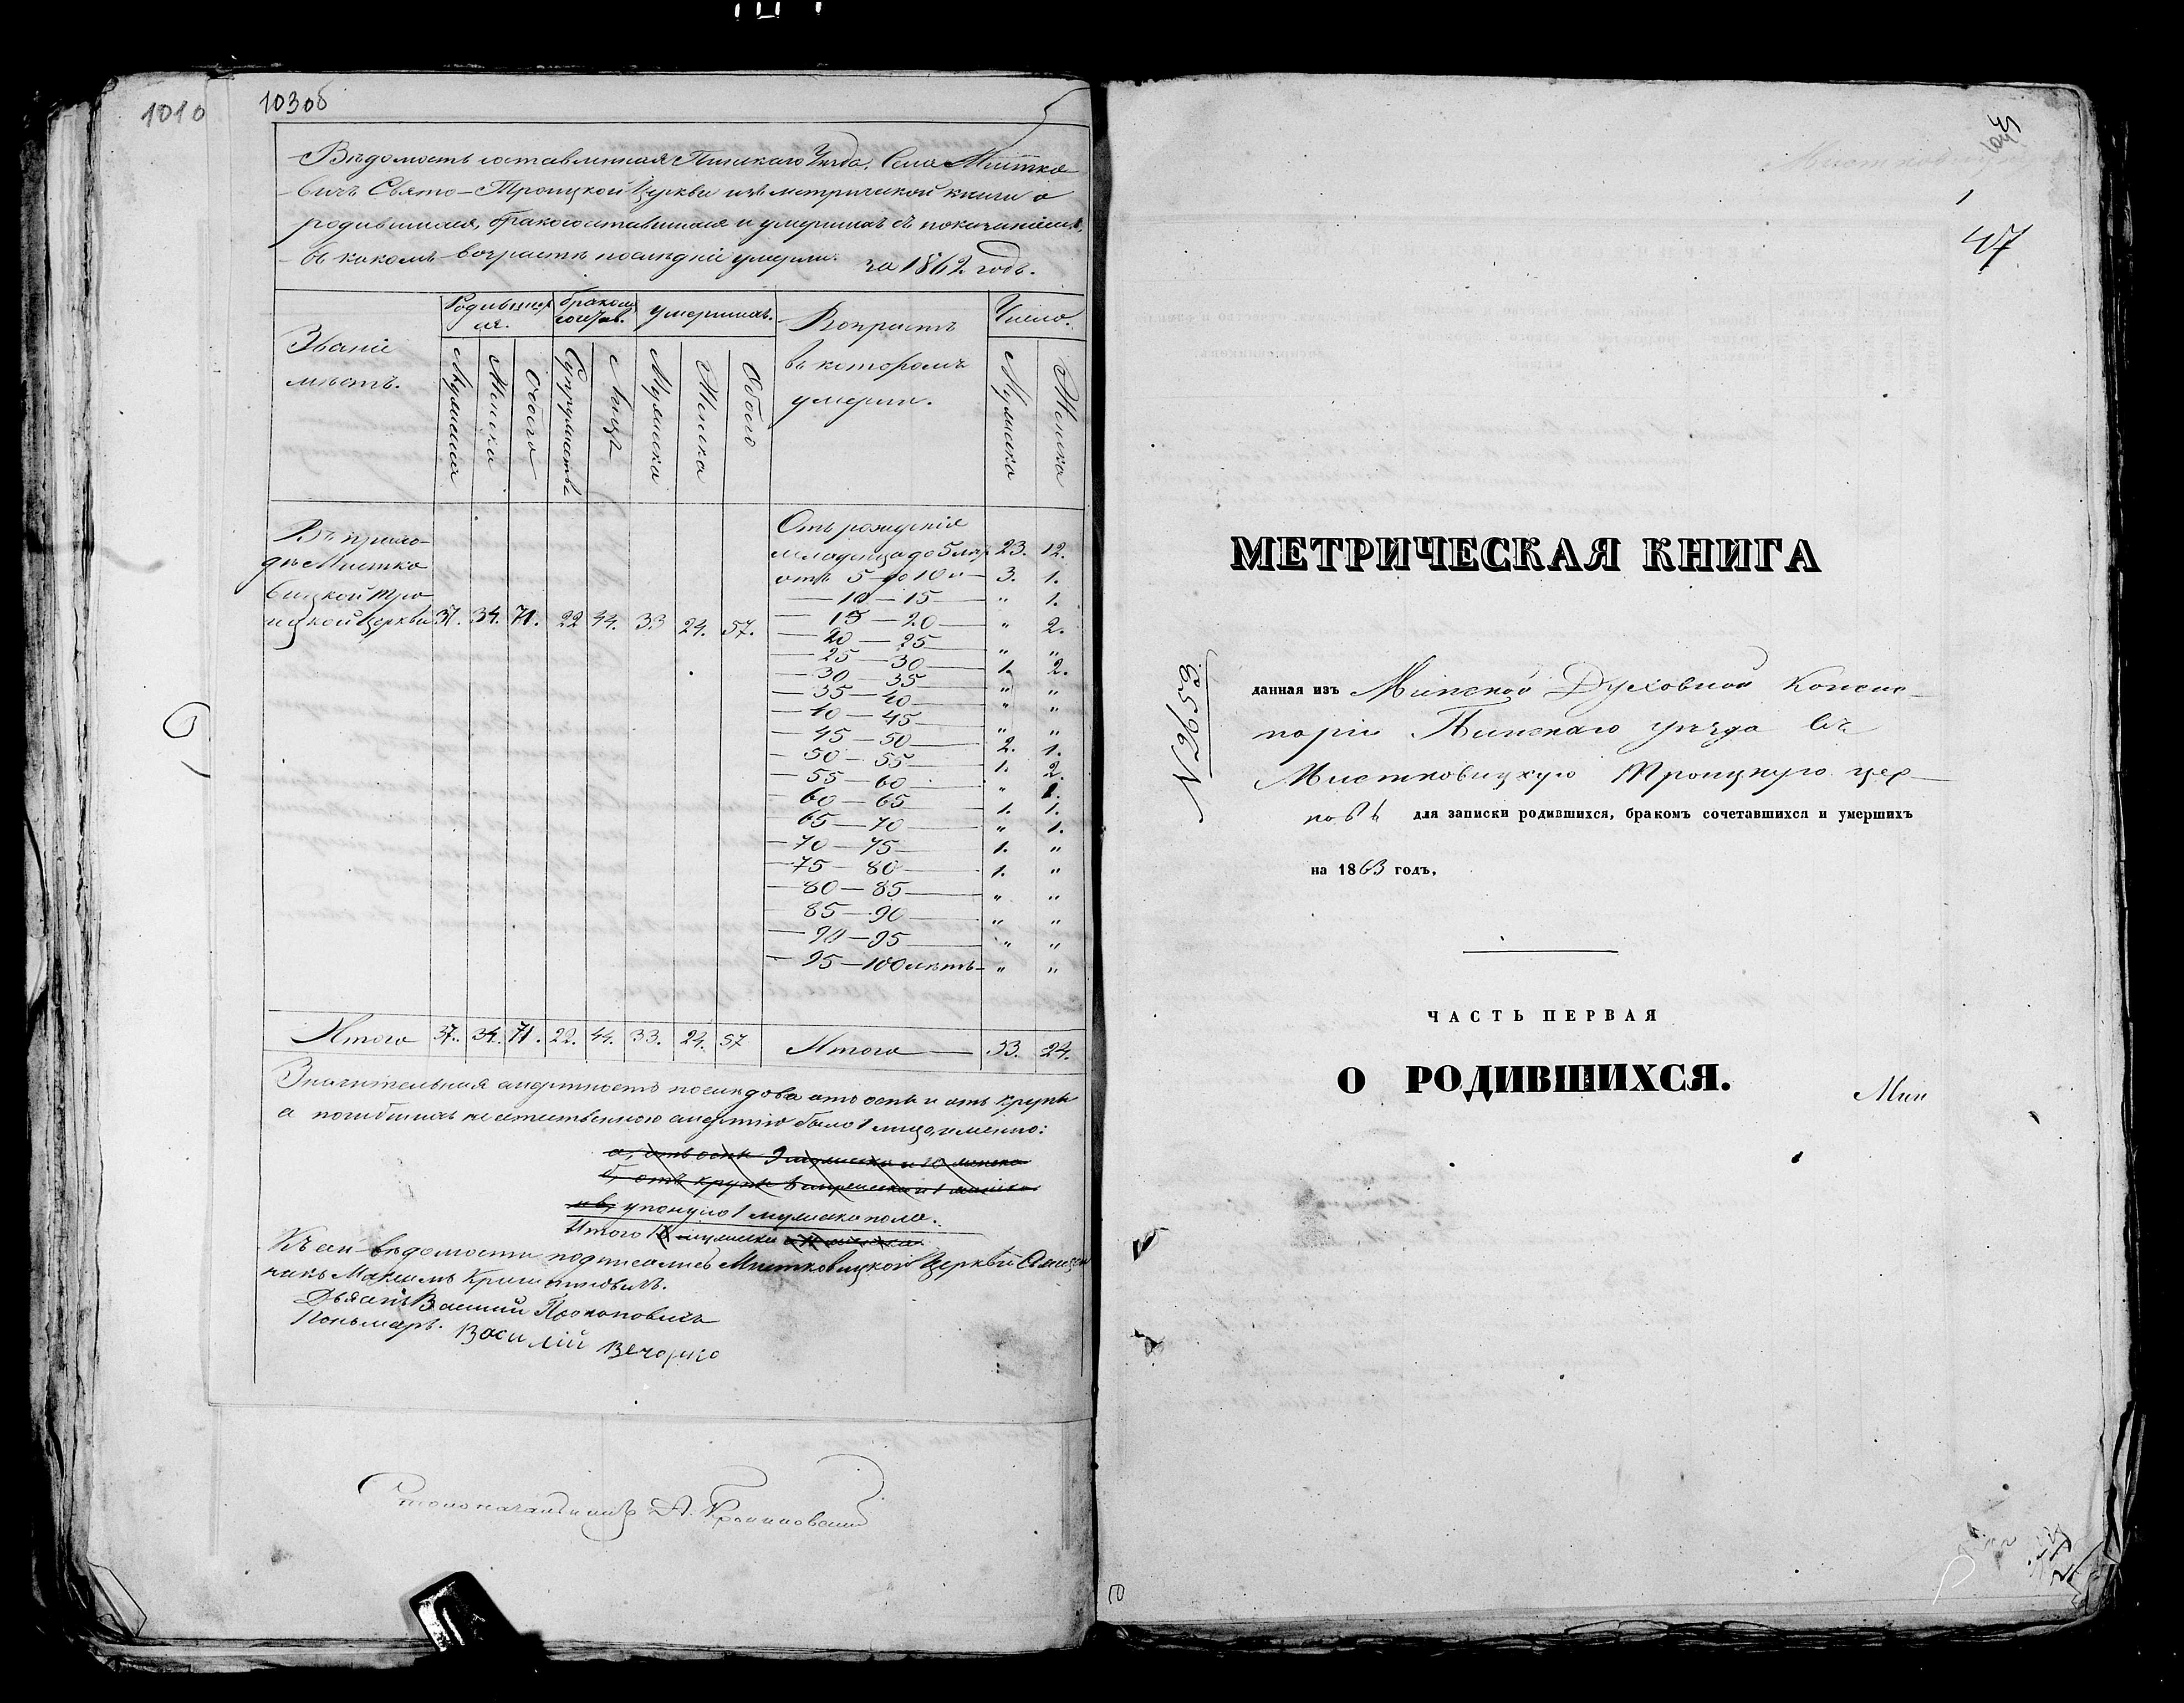 1010
103об
Вѣдомость составленная Пинскаго Уѣзда, Села Мистко-
вичъ Свято-Троицкой Церкви изъ метрической книги о
родившихся, бракосочетавшихся и умершихъ съ показаніемъ,
въ какомъ возрастѣ послѣдніе умерли. за 1862 годъ.
Званіе
мѣстъ.
Родивших
ся.
бракомъ
сочетав.
умершихъ.
Возрастъ
въ которомъ
умерли.
Число.
Мужеска
Женска
Обоего
Супружествъ
Лицъ
Мужеска
Женска
Обоего
Мужеска
Женска
Въ прихо-
дѣ Мистко
вицкой Тро
ицкой Церкви 37. 34. 71. 22 44. 33 24. 57.
Отъ рожденія
младенца до 5 лѣтъ 23. 12.
отъ 5 до 10 — 3. 1.
— 10 — 15 — „ 1.
— 15 — 20 — „ 2.
— 20 — 25 — „ „
— 25 — 30 — 1. 2.
— 30 — 35 — „ „
— 35 — 40 — „ „
— 40 — 45 — „ „
— 45 — 50 — 2. 1.
— 50 — 55 — 1. 2.
— 55 — 60 — „ 1.
— 60 — 65 — 1. 1.
— 65 — 70 — „ 1.
— 70 — 75 — 1. „
— 75 — 80 — 1. „
— 80 — 85 — „ „
— 85 — 90 — „ „
— 90 — 95 — „ „
— 95 — 100 лѣтъ — „ „
Итого 37. 34. 71. 22. 44. 33. 24. 57 Итого — 33. 24.
Значительная смертность послѣдова отъ оспы и отъ крупы
а погибшихъ не естественною смертію было 1 лицо, именно:
а, отъ оспы 9 мужеска и 10 женска
б, отъ крупы мужеска и 1 женска
и в, утонуло 1 мужеска пола.
Итого мужеска
Къ сей вѣдомости подписались Мистковицкой Церкви Священ
никъ Максимъ
Дьякъ Василій Прокоповичъ
Пономарь Василій Вечорко
Столоначальникъ А.
47
МЕТРИЧЕСКАЯ КНИГА
N 2653.
данная изъ Минской Духовной Консис-
торіи Пинскаго уѣзда въ
Мистковицкую Троицкую цер-
ковь для записки родившихся, бракомъ сочетавшихся и умершихъ
на 1863 годъ.
ЧАСТЬ ПЕРВАЯ
О РОДИВШИХСЯ.
Мин